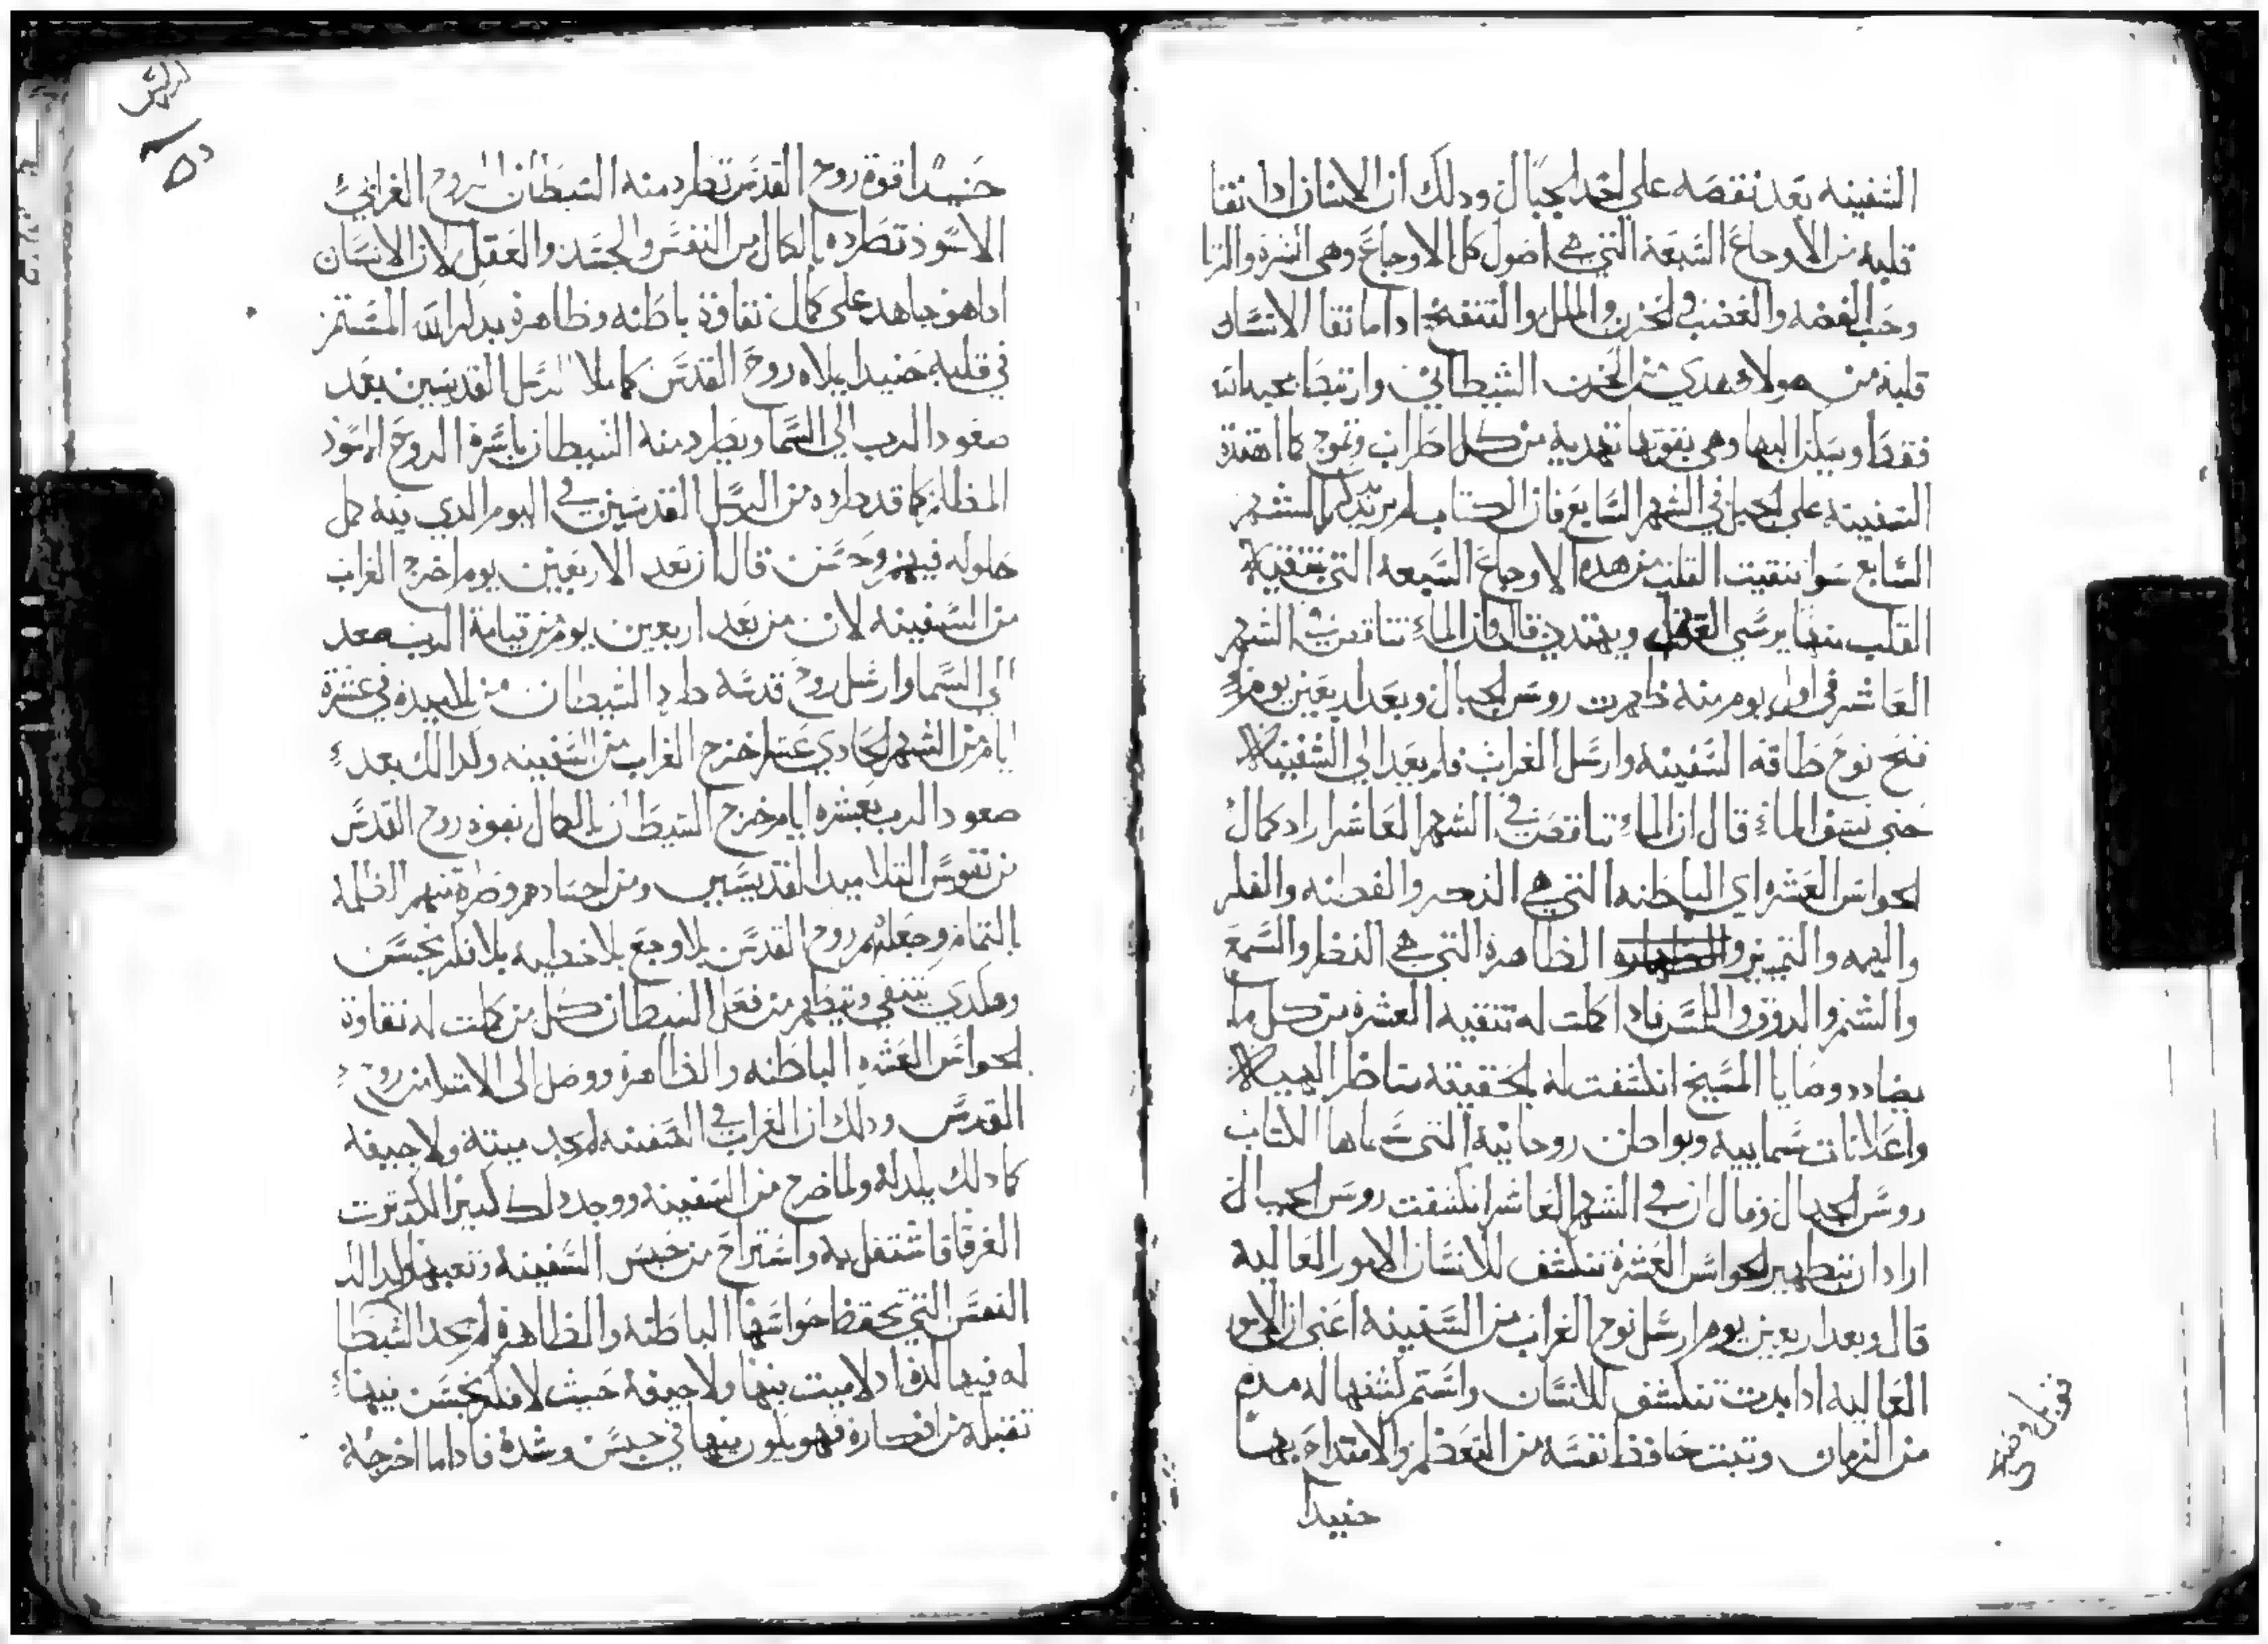 السفينه بعد نقصه على احد الجبال ودلك ان الانسان ادا نقا
قلبه من الاوجاع السبعة التي هي اصول كل الاوجاع وهي الشره والزنا
وحب الفضه والغضب والحزن والملل والتنفخ ادا ما نقا الانسان
قلبه من هولا هدي من الحزن الشيطاني وارتبط بمحبة الله
فقط وسكن اليها وهي بقوتها تهديه من كل اطراب وتموج كما اهتدة
السفينه على الجبل في الشهر السابع فان الكتاب لم يريد بذكر الشهر
السابع سوا تنقيت القلب من هده الاوجاع السبعه التي بتنقية
القلب منها يرسي العقل ويهتدي قال وان الماء تناقص في الشهر
العاشر في اول يوم منه ظهرت روس الجبال وبعد اربعين يوم
فتح نوح طاقة السفينه وارسل الغراب فلم يعد الى السفينه
حتى نشف الماء قال ان الماء تناقص في الشهر العاشر اراد كمال
الحواس العشره اي الباطنه التي هي الذهن والفطنه والفكر
والهمه والتمييز والظاهرة التي هي النظر والسمع
والشم والدوق واللمس فادا كملت له تنقية العشره من كل ما
يضادد وصايا المسيح انكشفت له بالحقيقة مناظر الهية
واعلانات سماييه وبواطن روحانية التي سماها الكتاب
روس الجبال وقال ان في الشهر العاشر انكشفت روس الجبال
اراد ان بتطهير الحواس العشرة تنكشف للانسان الامور العالية
قال وبعد اربعين يوم ارسل نوح الغراب من السفينه اعني ان الامور
العاليه ادا بدت تنكشف للانسان واستمر كشفها له مدة
من الزمان وتبت حافظا نفسه من التعظم والامتداح بها
حنيدا
حنيدا قوة روح القدس تطرد منه الشيطان الروح الغرابي
الاسود تطرده بالكمال من النفس والجسد والعقل لان الانسان
ادا هو جاهد على كمال نقاوة باطنه وظاهرة بدكر الله المستمر
في قلبه حنيدا يملاه روح القدس كما ملا الرسل القديسين بعد
صعود الرب الى السما ويطرد منه الشيطان باسرة الروح الاسود
المظلم كما قد طرده من الرسل القديسين في اليوم الدي فيه كمل
حلوله فيهم وحسن قال ان بعد الاربعين يوم اخرج الغراب
من السفينه لان من بعد اربعين يوم من قيامة الرب صعد
الى السما وارسل روح قدسه طرد الشيطان من تلاميده في عشرة
ايام من الشهر الحادي عشر اخرج الغراب من السفينه ولدالك بعد
صعود الرب بعشره ايام خرج الشيطان بالكمال بقوة روح القدس
من نفوس التلاميد القديسين ومن اجسادهم وطرة منهم الظلمه
بالتمام وجعلهم روح القدس بلا وجع بلا خطيه بلا فكر نجس
وهكدي يتنقي ويتطهر من فعل الشيطان كل من كملت له نقاوة
الحواس العشره الباطنه والظاهرة ووصل الى الامتلا من روح
القدس ودلك ان الغراب في السفينه لم يجد ميتة ولا جيفه
كما دلك يلدله ولما خرج من السفينه ووجد دلك كتير الكترت
الغرقا فاشتغل به واستراح من حبس السفينة وتعبها ولدالك
النفس التي تحفظ حواسها الباطنه والظاهرة لم يجد الشيطا
له فيها لدة اد لا ميت فيها ولا جيفة حيث لا فكر نجس فيها
تقبله من افكاره فهو يكون فيها في حبس وشدة فادا ما اخرجة